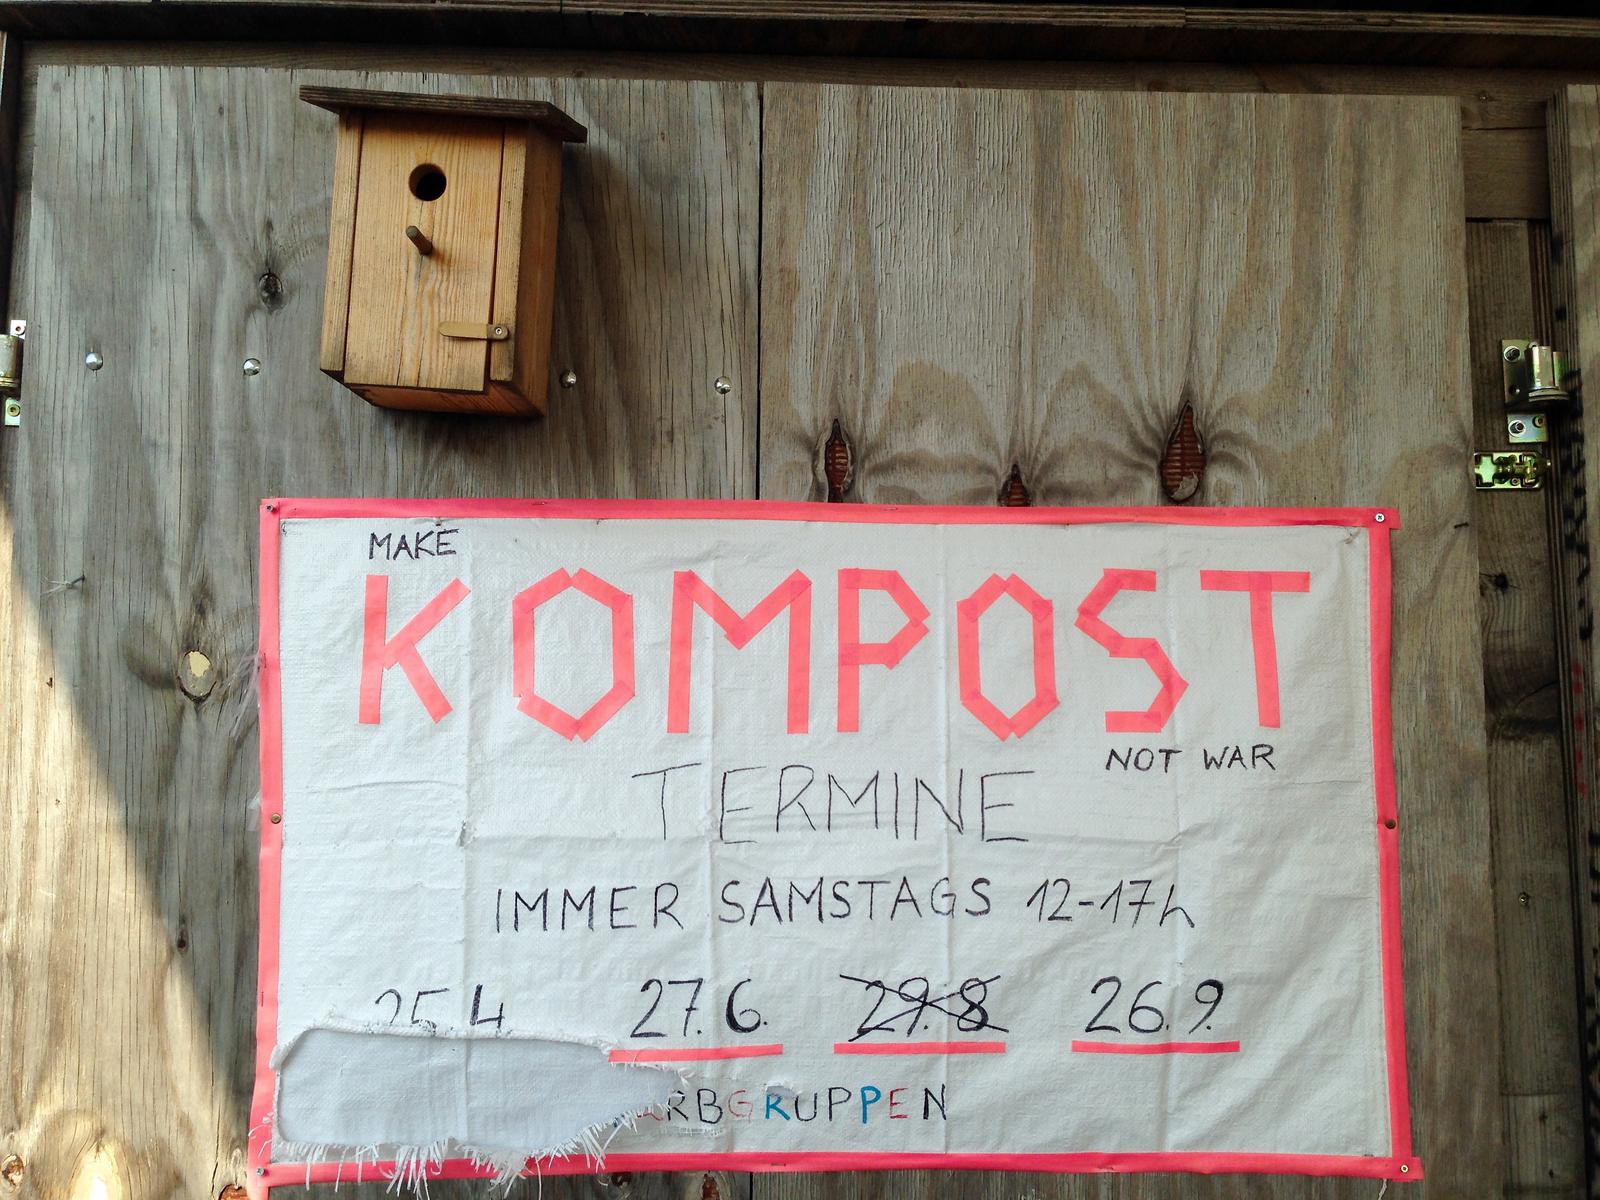 MAKE
KOMPOST
NOT WAR
TERMINE
IMMER SAMSTAGS 12-17h
25.4 27.6. 29.8 26.9.
ARBGRUPPEN